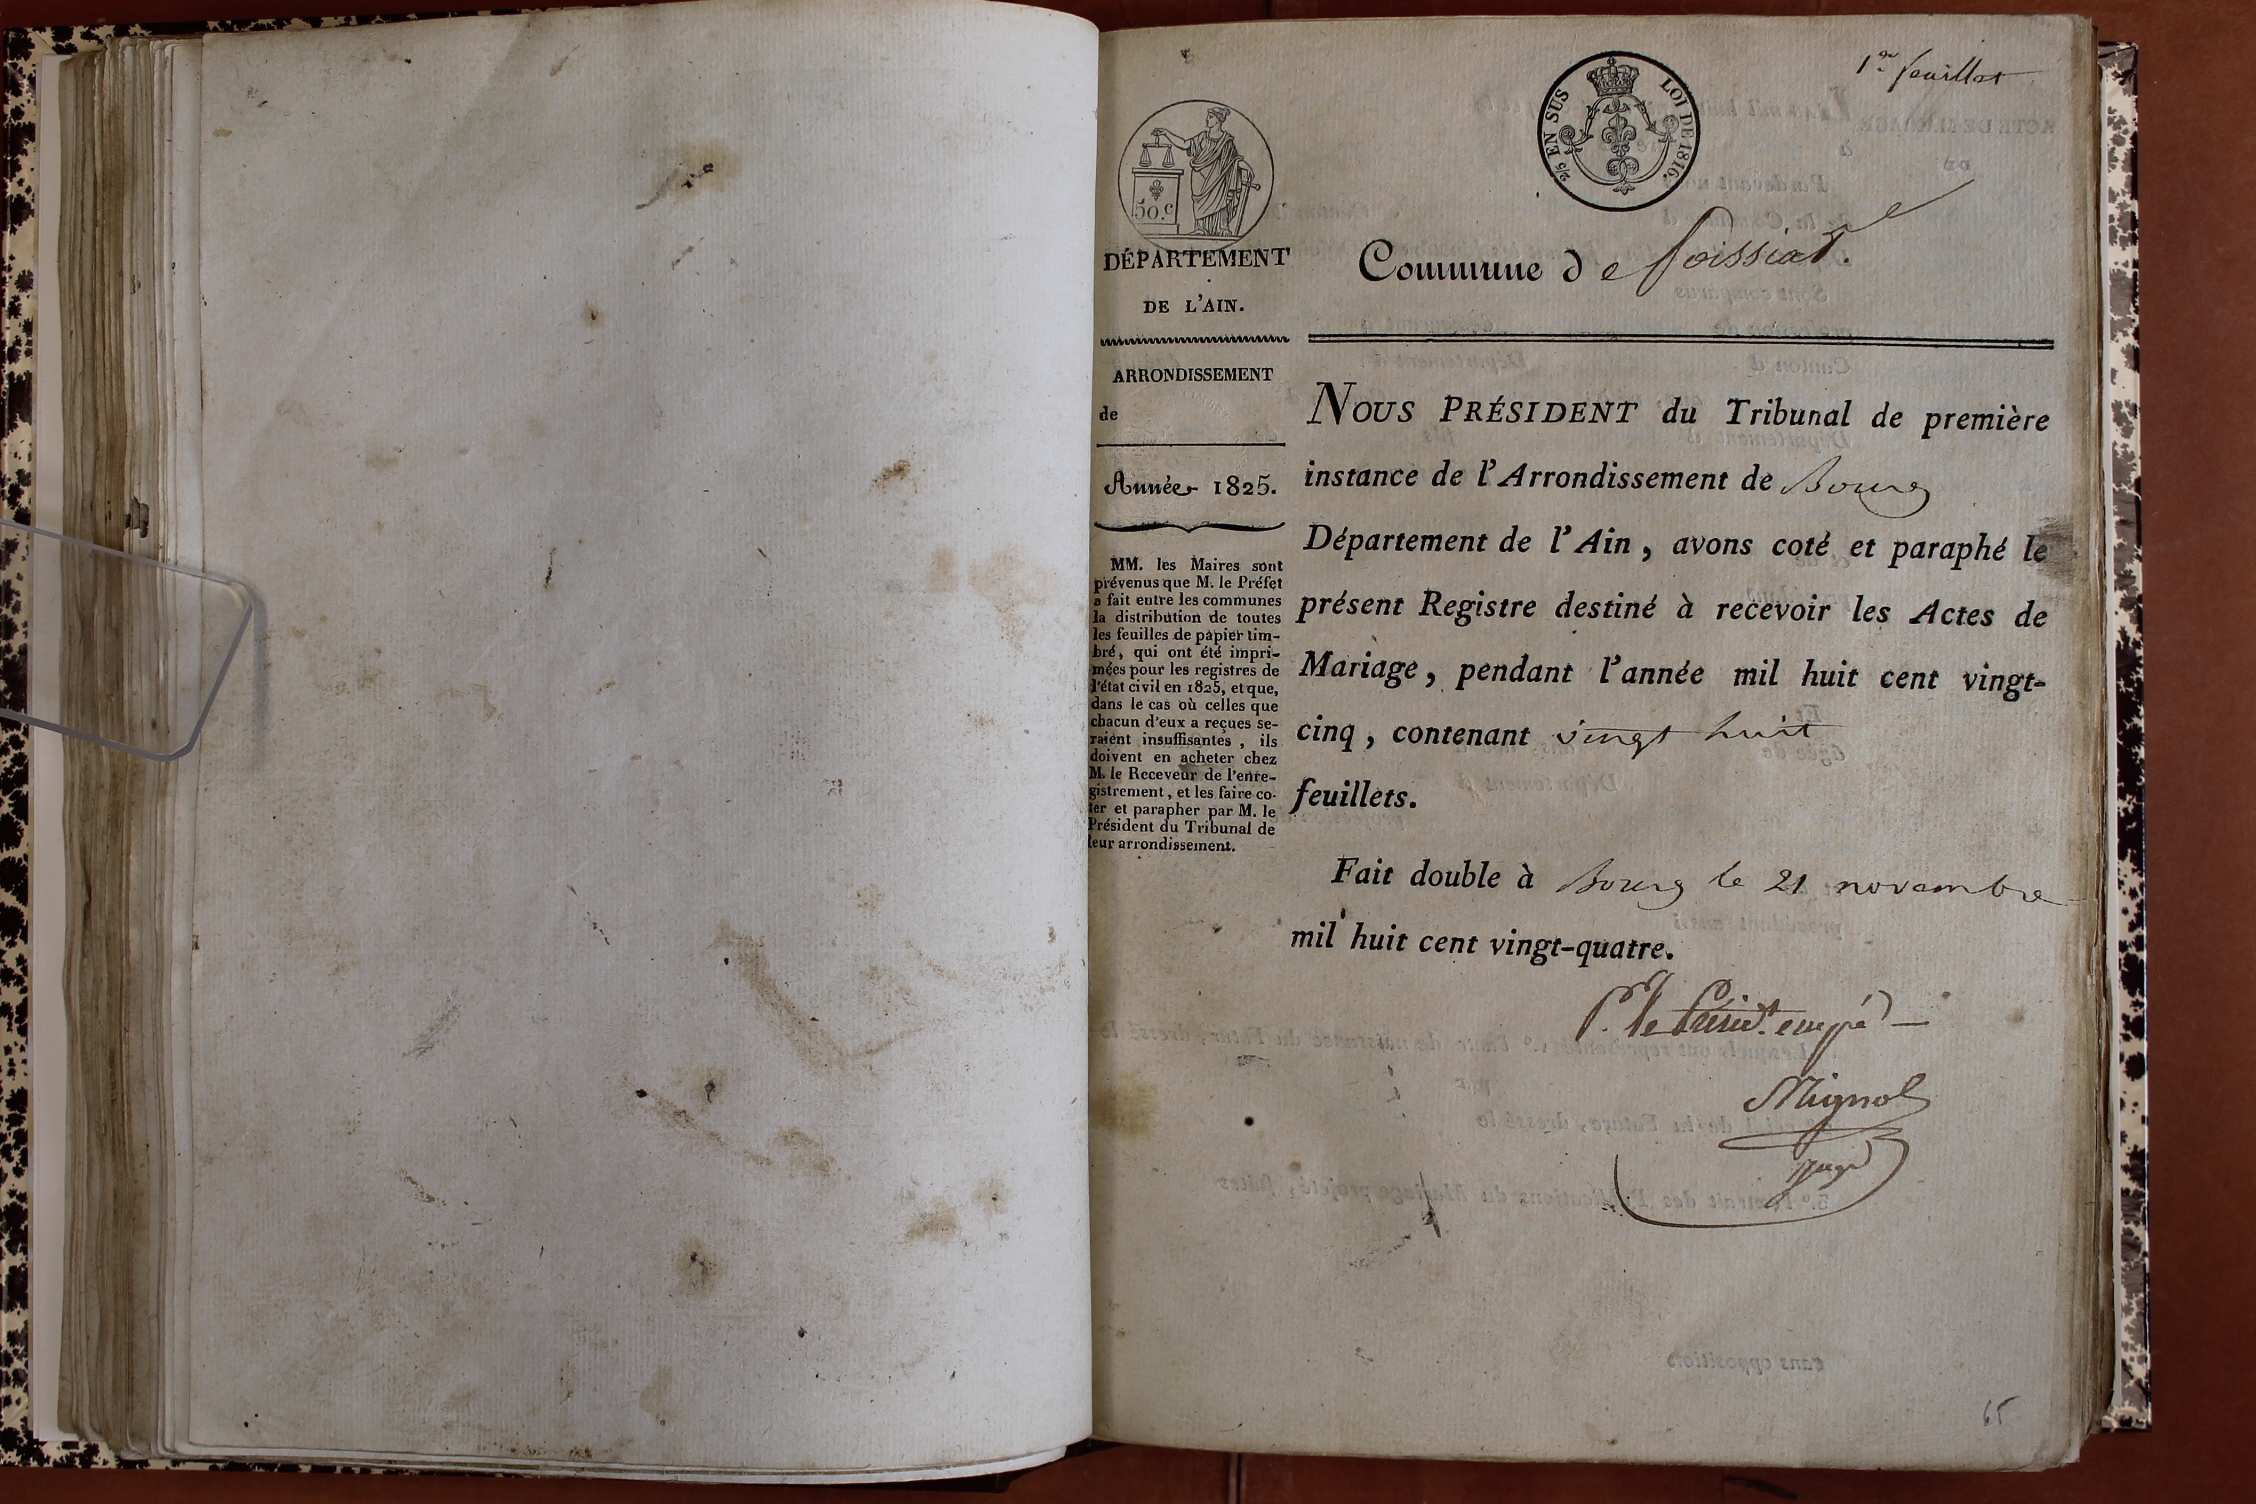 1er feuillet
2/5 EN SUS LOI DE 1816.
50.c
DÉPARTEMENT
DE L'AIN.
ARRONDISSEMENT
de
Année 1825.
MM. les Maires sont
prévenus que M. le Préfet
a fait entre les communes
la distribution de toutes
les feuilles de papier tim-
bré, qui ont été impri-
mées pour les registres de
l'état civil en 1825, et que,
dans le cas où celles que
chacun d'eux a reçues se-
raient insuffisantes, ils
doivent en acheter chez
M. le Receveur de l'enre-
gistrement, et les faire co-
ter et parapher par M. le
Président du Tribunal de
leur arrondissement.
Commune de
NOUS PRÉSIDENT du Tribunal de première
instance de l'Arrondissement de Bourg
Département de l'Ain, avons coté et paraphé le
présent Registre destiné à recevoir les Actes de
Mariage, pendant l'année mil huit cent vingt-
cinq, contenant vingt huit
feuillets.
Fait double à Bourg le 21 novembre
mil huit cent vingt-quatre.
P. le Présidt. empé
juge
65